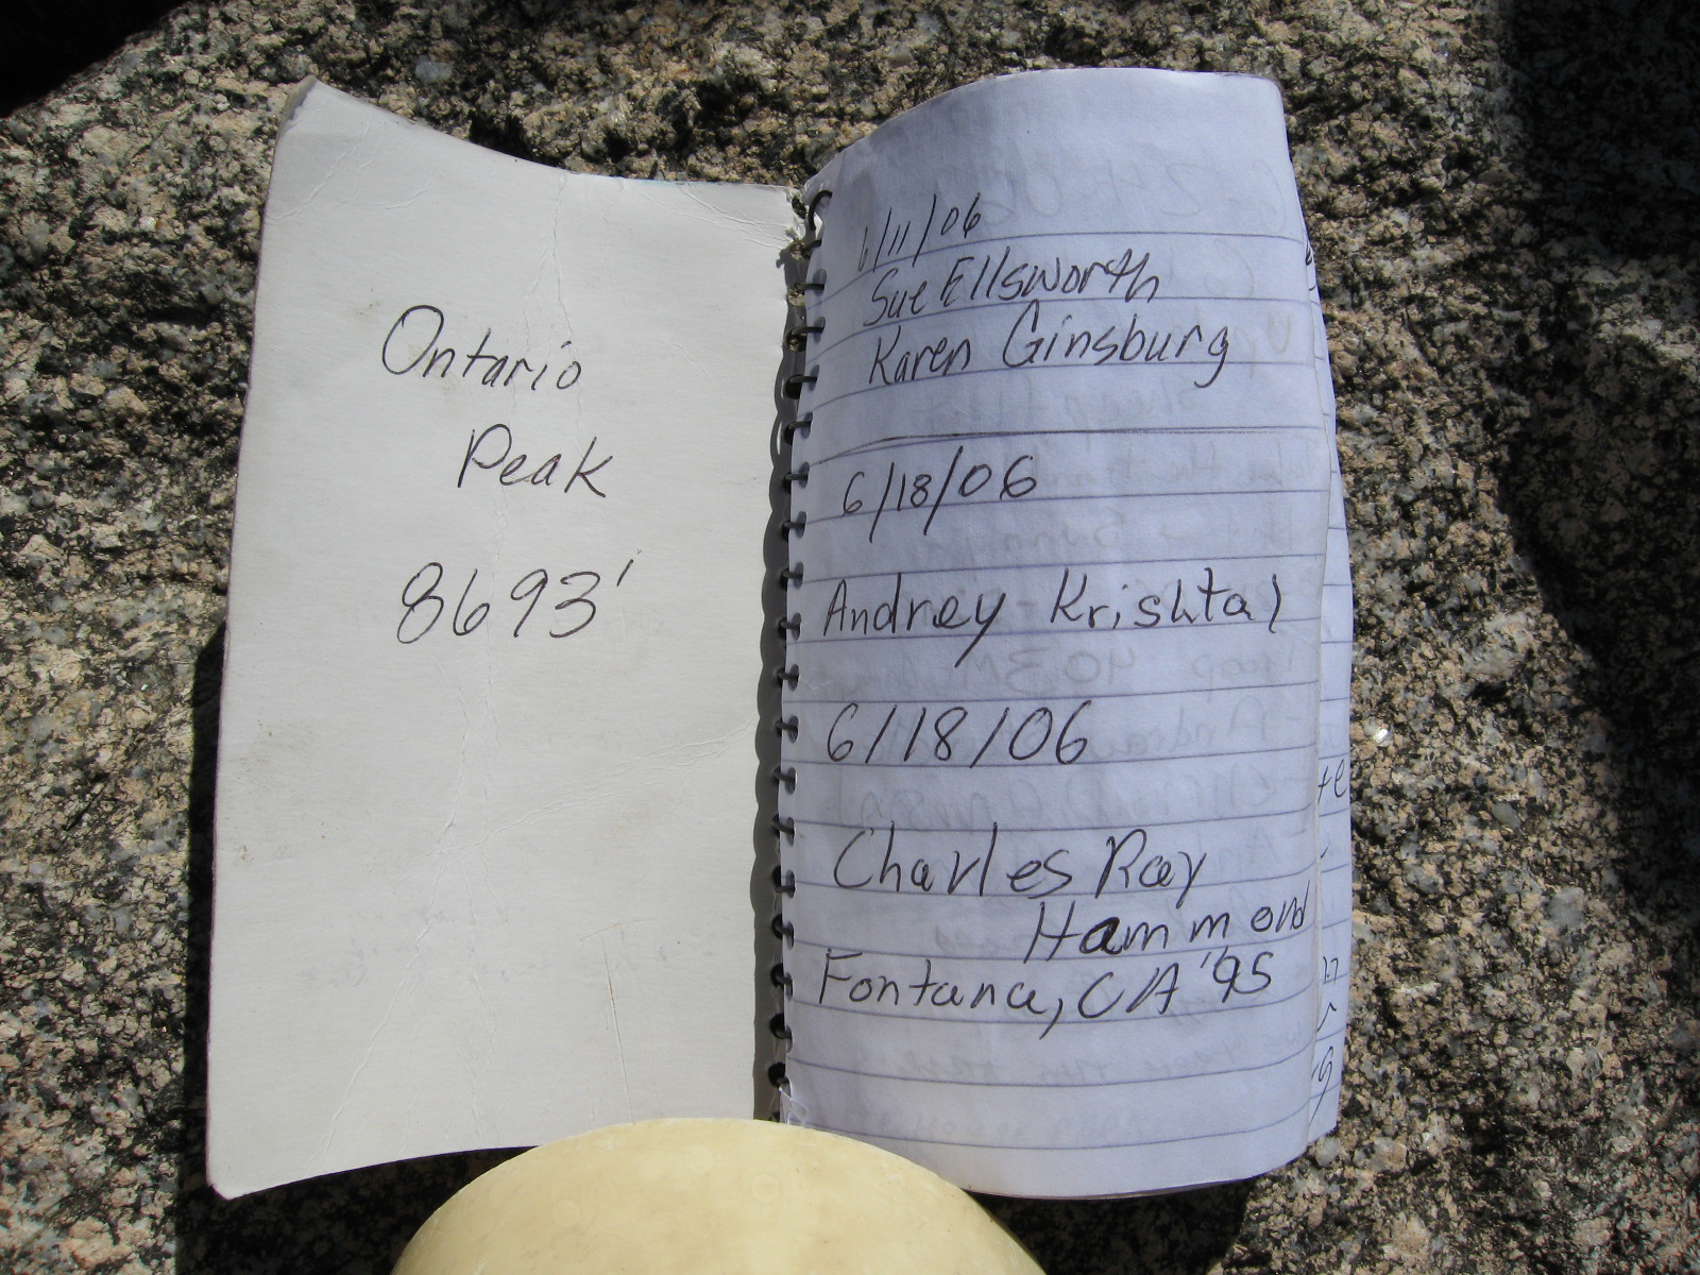 Ontario
Peak
8693'
6/11/06
Sue Ellsworth
Karen Ginsburg
6/18/06
Andrey Krishtal
6/18/06
Charles Ray
Hammond
Fontana, CA '95